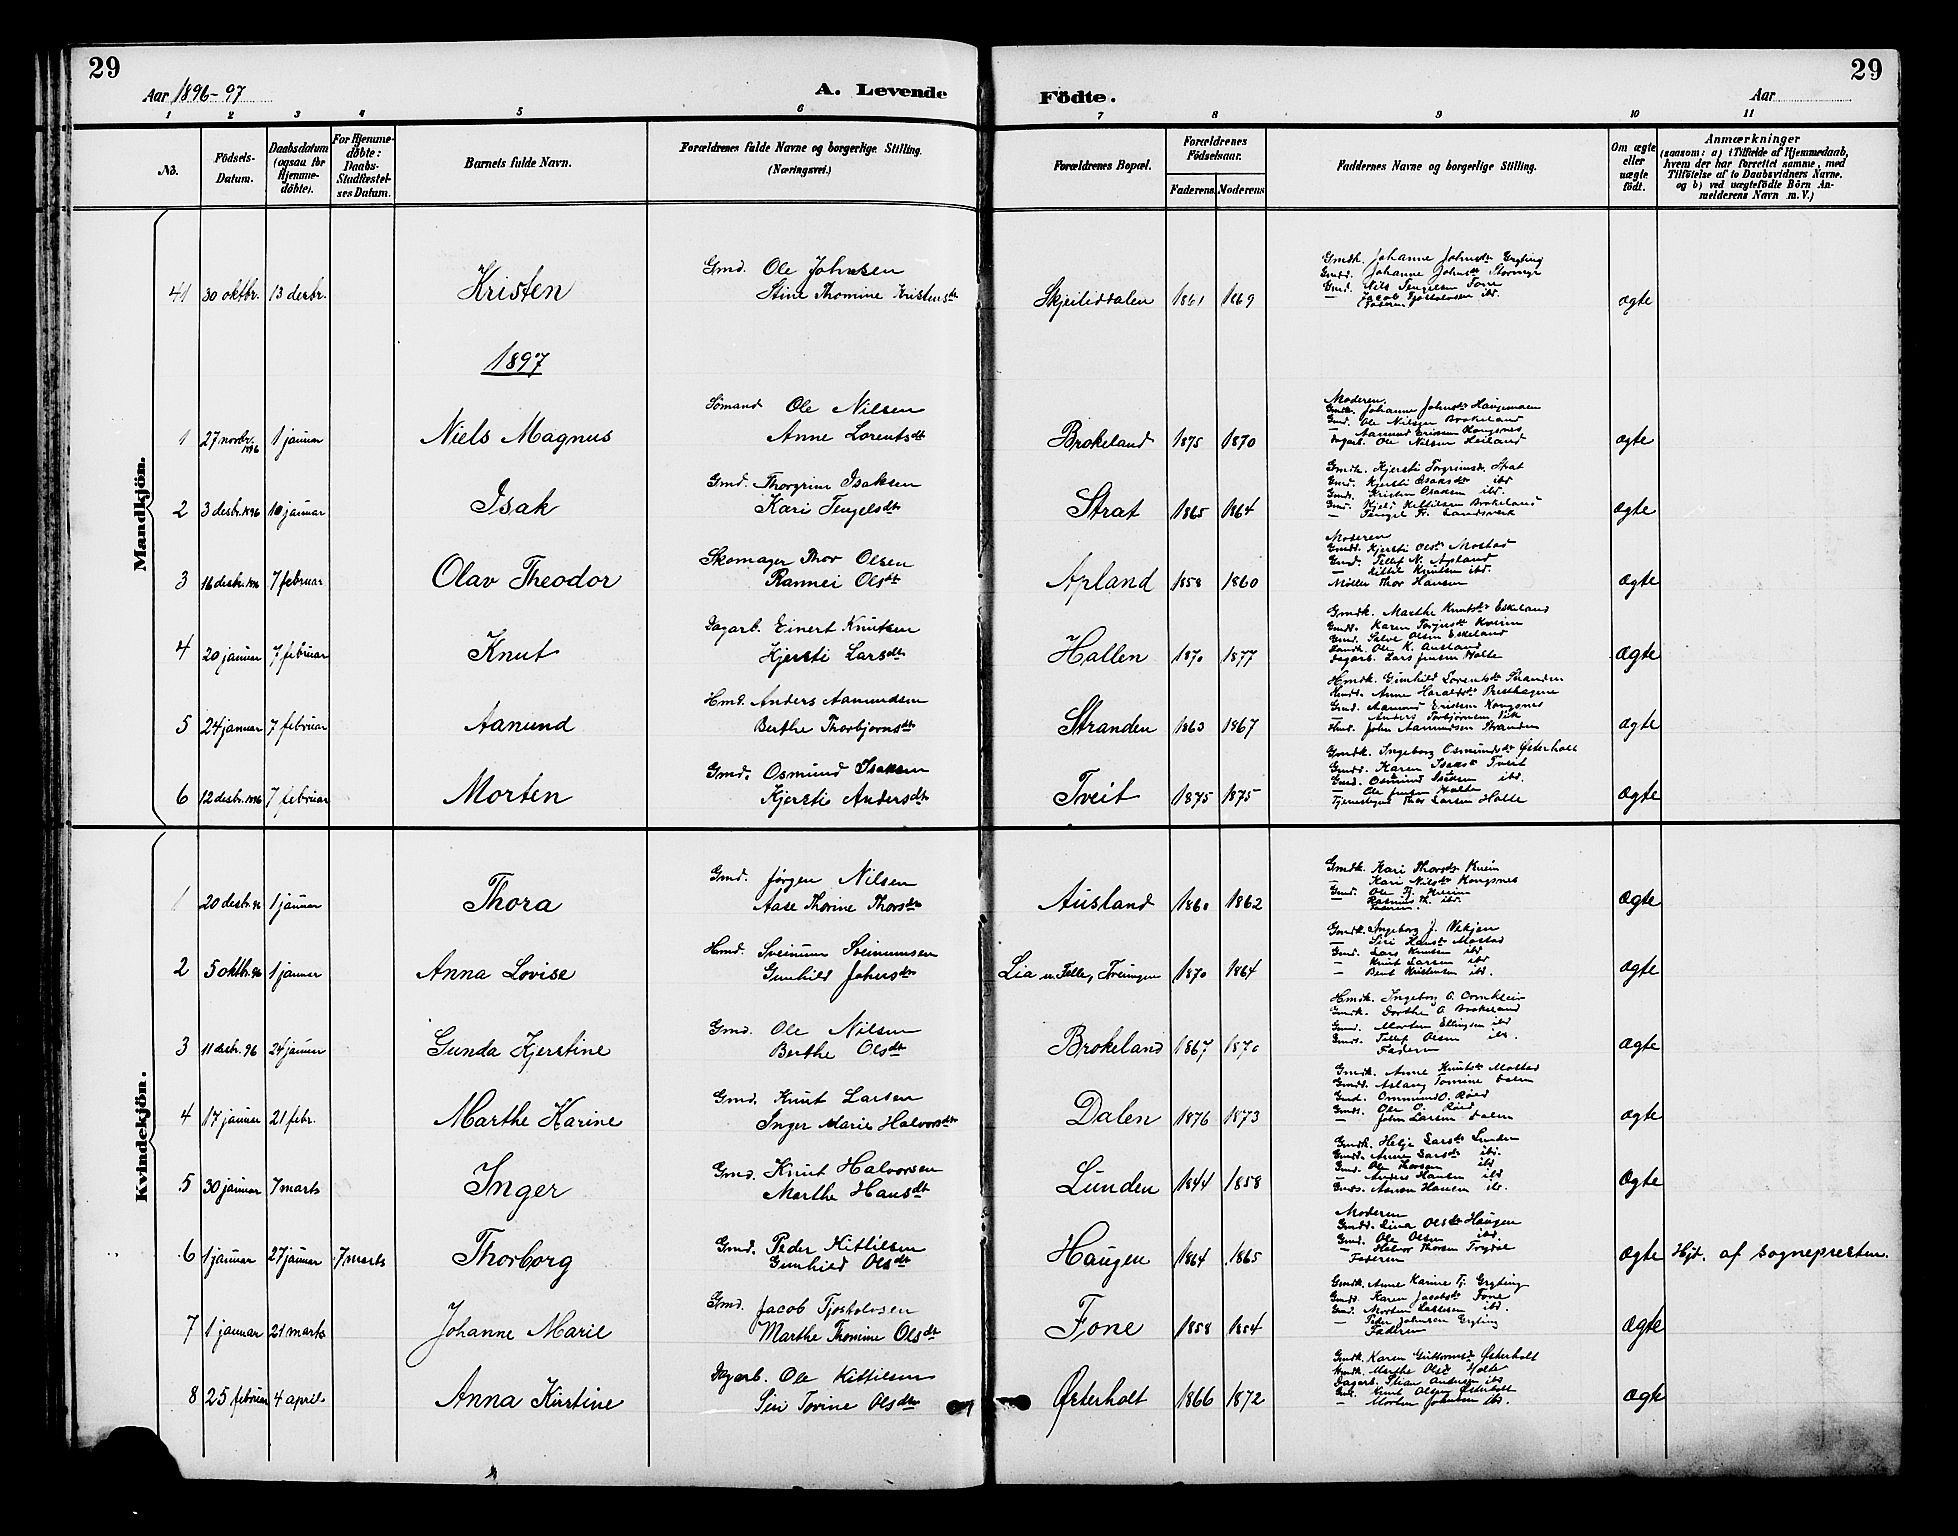 29
29
Aar 1896-97
A. Levende Födte.
Aar
1 2 3 4 5 6 7 8 9 10 11
No.
Födsels-Datum.
Daabsdatum (ogsaa for Hjemmedöbte).
For Hjemmedöbte: Daabs-Stadfæstelses Datum.
Barnets fulde Navn.
Forældrenes fulde Navne og borgerlige Stilling. (Næringsvei.)
Forældrenes Bopæl.
Forældrenes Födselsaar.
Faderens. Moderens
Faddernes Navne og borgerlige Stilling.
Om ægte eller uægte födt.
Anmærkninger
(saasom: a) i Tilfælde af Hjemmedaab, hvem der har forrettet samme, med Tilföielse af to Daabsvidners Navne. og b) ved uægtefödte Börn Anmelderens Navn m. V.)
Mandkjön.
41 30 oktbr. 13 desbr. Kristen
Gmd. Ole Johnsen
Stine Thomine Kristensdtr
Skjeiliddalen 1861 1869
Gmdk. Johanne Johnsdtr Gryting
Gmdd. Johanne Johnsdtr
Gmd. Nils Tengelsen Fone
— Jacob Tjostolvsen ibd.
Faderen
ægte
1897
1 27 novbr. 1896 1 januar Niels Magnus
Sømand Ole Nilsen
Anne Lorentsdtr
Brokeland 1875 1870
Moderen.
Gmdk. Johanne Johnsdtr
Gmd. Ole Nilsen Brokeland
— Aamund Ericsen Kongsnes
Dagarb. Ole Nilsen
ægte
2 3 desbr. 1896 10 januar Isak
Gmd. Thorgrim Isaksen
Kari Tengelsdtr
Strat 1865 1864
Gmdk. Kjersti Torgrimsdtr. Strat
Gmd. Kjersti Isaksdtr ibd
Gmd. Kristen Isaksen ibd.
Gmd. Kjel Kittilsen Brokeland
— Tengel Landsverk
ægte
3 16 desbr. 1896 7 februar Olav Theodor
Skomager Thor Olsen
Rannei Olsdtr
Apland 1858 1860
Moderen
Gmdd. Kjersti Olsdtr Mostad
Gmd. Tellef N. Apland
— Kittil Knutsen ibd.
Møller Thor Hansen
ægte
4 20 januar 7 februar Knut
Dagarb. Einert Knutsen
Kjersti Larsdtr
Hallen 1870 1877
Gmdk. Marthe Knutsdtr Eskeland
Gmdd. Karen Torjusdtr Kveim
Gmd. Salve Olsen Eskeland
Ole K. Ausland
Dagarb. Lars Jensen Holte
ægte
5 24 januar 7 februar Aanund
Hmd. Anders Aanundsen
Berthe Thorbjornsdtr
Stranden 1863 1867
Hmdk. Gunhild Lorentsdtr Stranden
Hmdd. Anne Haraldsdtr Presthagene
Gmd. Aamund Ericsen Kongsnes
— Anders Torbjørnsen Vik
Hmd. John Aanundsen Stranden
ægte
6 12 desbr. 1896 7 februar Morten
Gmd. Osmund Isaksen
Kjersti Andersdtr
Tveit 1875 1875
Gmdk. Ingeborg Osmundsdtr Østerholt
Gmdd. Karen Isaksdtr Tveit
Gmd. Osmund Isaksen ibd.
— Ole Jensen Holte
Tjenestegut Thor Larsen Holte
ægte
Kvindekjön.
1 20 desbr. 96 1 januar Thora
Gmd. Jørgen Nilsen
Aase Thorine Thorsdtr
Ausland 1860 1862
Gmdk. Kari Thorsdtr Kveim
— Kari Nilsdtr Kongsnes
Gmd. Ole Tj. Kveim
Rasmus Th. ibd.
Faderen.
ægte
2 5 oktbr. 96 1 januar Anna Lovise
Hmd. Sveinum Sveinumsen
Gunhild Johnsdtr
Lia Treungen 1870 1864
Gmdk. Ingeborg J. Vekjen
— Siri Hansdtr Mostad
Gmd. Lars Knutsen ibd
— Knut Larsen ibd
— Bent Kristensen ibd.
ægte
3 11 desbr. 96 24 januar Gunda Kjerstine
Gmd. Ole Nilsen
Berthe Olsdtr
Brokeland 1867 1870
Hmdk. Ingeborg O.
Gmdk. Dorthe O. Brokeland
Gmd. Morten Ellingsen ibd
Gmds. Tellef Olsen ib.
Faderen
ægte
4 17 januar 21 febr. Marthe Karine
Gmd. Knut Larsen
Inger Marie Halvorsdtr
Dalen 1876 1873
Gmdk. Anne Knutsdtr Mostad
Gmdd. Aslaug Tomine Dalen
Gmd. Ommund O. Røed
Gmds. Ole O. Røed
— John Larsen Dalen
ægte
5 30 januar 7 marts Inger
Gmd. Knut Halvorsen
Marthe Hansdtr
Lunden 1844 1858
Gmdk. Helje Larsdtr Lunden
Gmdd. Anne Larsdtr ibd.
Gmd. Ole Thorsen ibd
— Anders Hansen ibd
Gmds. Hansen ib.
ægte
6 1 januar 27 januar 7 marts Thorborg
Gmd. Peder Kittilsen
Gunhild Olsdtr
Haugen 1864 1865
Moderen
Gmdd. Lina Olsdtr Haugen
Gmd. Ole Olsen ibd.
— Halvor Thorsen Trydal
Faderen
ægte Hjd. af sognepresten.
7 1 januar 21 marts Johanne Marie
Gmd. Jacob Tjostolvsen
Marthe Thomine Olsdtr
Fone 1858 1854
Gmdk. Anne Karine Tj. Gryting
Gmdd. Karen Jacobsdtr Fone
Gmd. Morten Lassesen ibd.
— Peder Johnsen Gryting
Faderen
ægte
8 25 februar 4 april Anna Kirstine
Dagarb. Ole Kittilsen
Siri Torine Olsdtr
Østerholt 1866 1872
Gmdk. Karen Guttormsd Østerholt
Gmdk. Marthe Olsd Holte
Dagarb. Stian Andersen ibd
Gmd. Knut Olsen Østerholt
— Morten Johnsen ibd.
ægte